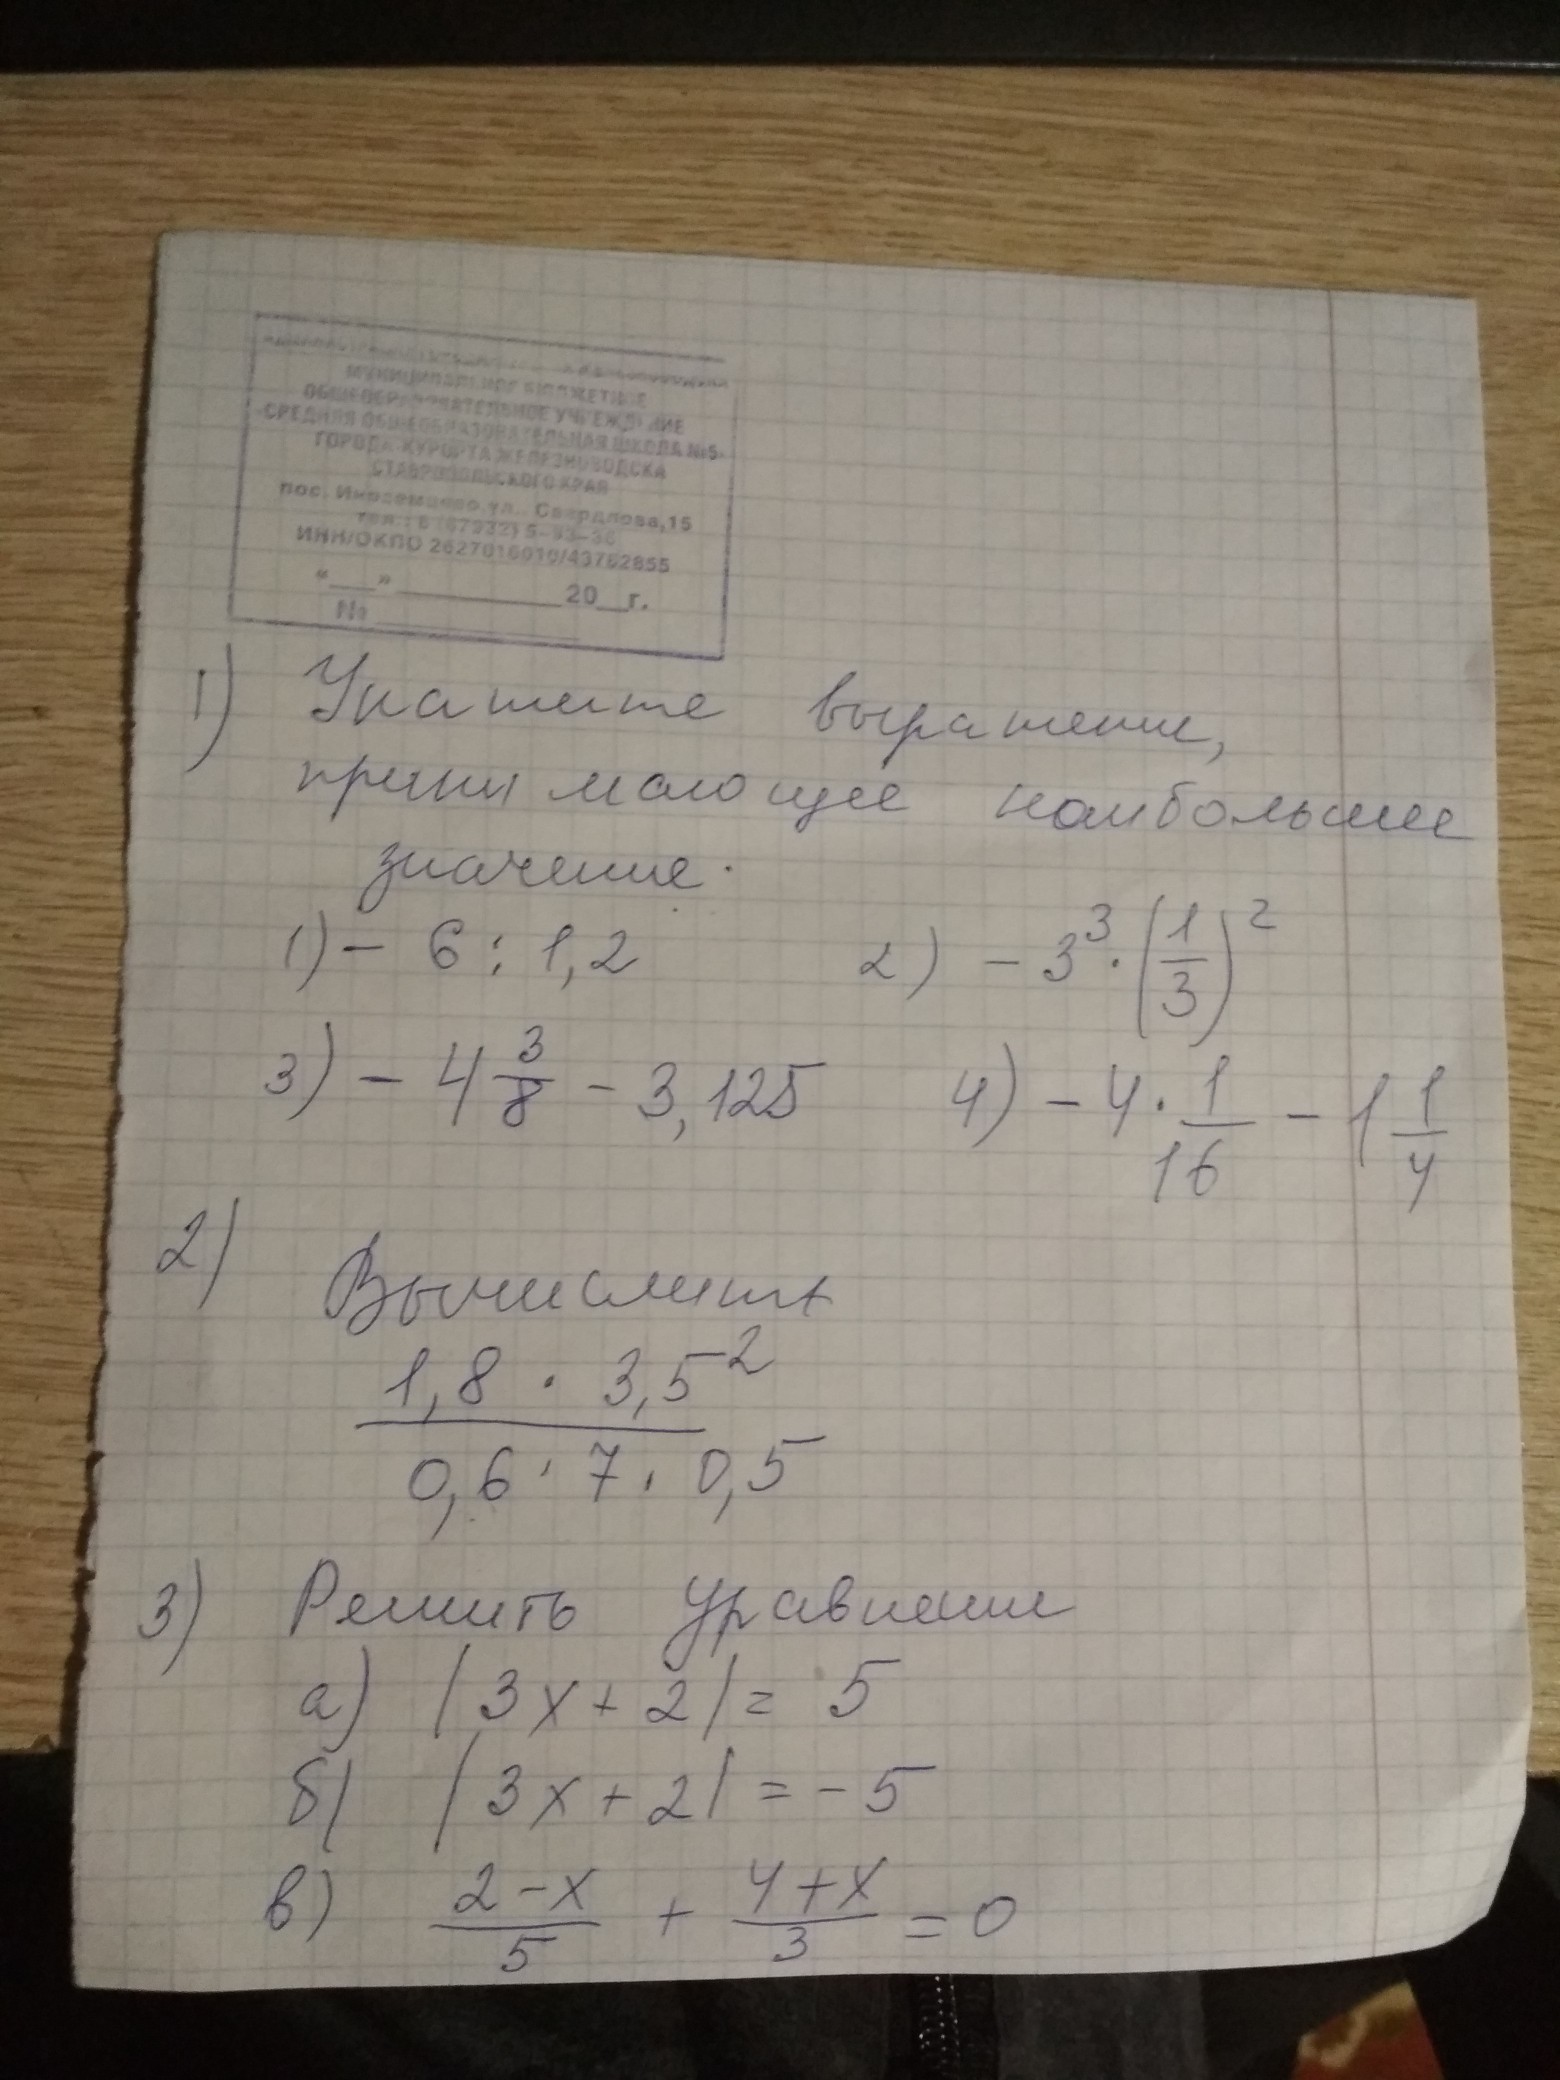 МУНИЦИПАЛЬНОЕ БЮДЖЕТНОЕ
ОБЩЕОБРАЗОВАТЕЛЬНОЕ УЧРЕЖДЕНИЕ
«СРЕДНЯЯ ОБЩЕОБРАЗОВАТЕЛЬНАЯ ШКОЛА №5»
ГОРОДА-КУРОРТА ЖЕЛЕЗНОВОДСКА
СТАВРОПОЛЬСКОГО КРАЯ
пос. Иноземцево, ул. Свердлова,15
ИНН/ОКПО
«___» ____________20__г.
№ ____________
1) Укажите выражение,
принимающее наибольшее
значение.
1) - 6 : 1,2 2) - 3³ · (1/3)²
3) - 4 3/8 - 3,125 4) - 4 · 1/16 - 1 1/4
2) Вычислить
1,8 · 3,5²
0,6 · 7 · 0,5
3) Решить уравнение
а) |3x + 2| = 5
б) |3x + 2| = - 5
в) (2 - x)/5 + (4 + x)/3 = 0